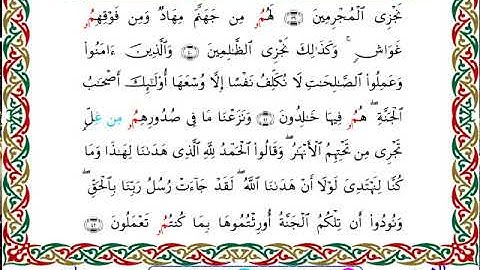 نَجْزِى ٱلْمُجْرِمِينَ ۝٣٩ لَهُمُۥ مِن جَهَنَّمَ مِهَادٌ وَمِن فَوْقِهِمُۥ
غَوَاشٍ ۚ وَكَذَٰلِكَ نَجْزِى ٱلظَّٰلِمِينَ ۝٤٠ وَٱلَّذِينَ ءَامَنُوا۟
وَعَمِلُوا۟ ٱلصَّٰلِحَٰتِ لَا نُكَلِّفُ نَفْسًا إِلَّا وُسْعَهَا أُو۟لَٰٓئِكَ أَصْحَٰبُ
ٱلْجَنَّةِ ۖ هُمُۥ فِيهَا خَٰلِدُونَ ۝٤١ وَنَزَعْنَا مَا فِى صُدُورِهِمُۥ مِن غِلٍّ
تَجْرِى مِن تَحْتِهِمُ ٱلْأَنْهَٰرُ ۖ وَقَالُوا۟ ٱلْحَمْدُ لِلَّهِ ٱلَّذِى هَدَىٰنَا لِهَٰذَا وَمَا
كُنَّا لِنَهْتَدِىَ لَوْلَا أَنْ هَدَىٰنَا ٱللَّهُ ۖ لَقَدْ جَآءَتْ رُسُلُ رَبِّنَا بِٱلْحَقِّ ۖ
وَنُودُوٓا۟ أَن تِلْكُمُ ٱلْجَنَّةُ أُورِثْتُمُوهَا بِمَا كُنتُمُۥ تَعْمَلُونَ ۝٤٢